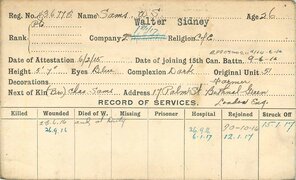 Reg. No. 436770 Name Sams W.S. Age 26
Walter Sidney
Rank Pte Company Religion C/E
Date of Attestation 6/2/15 Date of joining 15th Can. Battn. 9-6-16
Height 5'-7" Eyes Blue Complexion Dark Original Unit 51
Decorations Farmer
Next of Kin (Bro) Chas. Sams Address 17 Palm St Bethnal Green
London Eng.
RECORD OF SERVICES.
Killed Wounded Died of W. Missing Prisoner Hospital Rejoined Struck Off
and at Duty 15-1-17
26.9.16 26.9.16 30-10-16
6.1.17 12.1.17